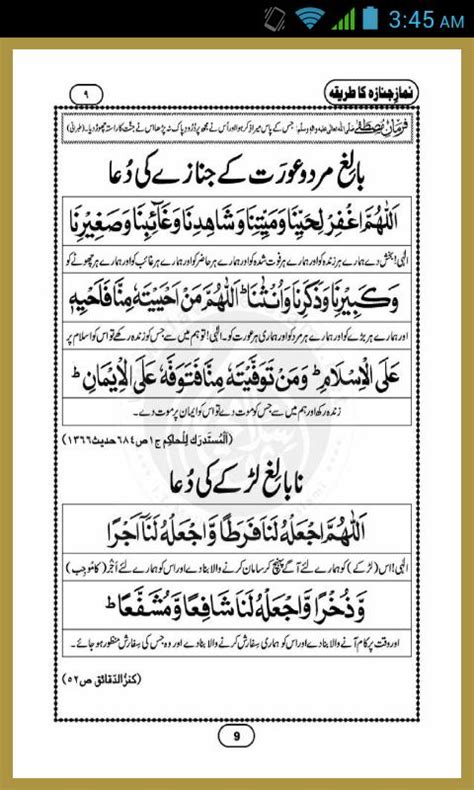 3:45 AM
نمازِ جنازہ کا طریقہ
۹
فرمانِ مصطفٰے صلی اللہ تعالیٰ علیہ والہ وسلم: جس کے پاس میرا ذکر ہوا اور اُس نے مجھ پر دُرُودِ پاک نہ پڑھا اس نے جنّت کا راستہ چھوڑ دیا۔ (طبرانی)
بالِغ مرد و عورَت کے جنازے کی دُعا
اَللّٰهُمَّ اغْفِرْ لِحَيِّنَا وَمَيِّتِنَا وَشَاهِدِنَا وَغَآئِبِنَا وَصَغِيْرِنَا
الٰہی! بخش دے ہمارے ہر زندہ کو اور ہمارے ہر فوت شدہ کو اور ہمارے ہر حاضر کو اور ہمارے ہر غائب کو اور ہمارے ہر چھوٹے کو
وَكَبِيْرِنَا وَذَكَرِنَا وَاُنْثٰنَا ؕ اَللّٰهُمَّ مَنْ اَحْيَيْتَهٗ مِنَّا فَاَحْيِهٖ
اور ہمارے ہر بڑے کو اور ہمارے ہر مرد کو اور ہماری ہر عورت کو۔ الٰہی! تو ہم میں سے جس کو زندہ رکھے تو اس کو اسلام پر
عَلَى الْاِسْلَامِ ؕ وَمَنْ تَوَفَّيْتَهٗ مِنَّا فَتَوَفَّهٗ عَلَى الْاِيْمَانِ ؕ
زندہ رکھ اور ہم میں سے جس کو موت دے تو اس کو ایمان پر موت دے۔
(اَلْمُسْتَدْرَك لِلْحاكِم ج۱ ص۶۸۴ حدیث ۱۳۶۶)
نابالِغ لڑکے کی دُعا
اَللّٰهُمَّ اجْعَلْهُ لَنَا فَرَطًا وَّاجْعَلْهُ لَنَآ اَجْرًا
الٰہی! اس (لڑکے) کو ہمارے لئے آگے پہنچ کر سامان کرنے والا بنا دے اور اس کو ہمارے لئے اَجْر (کا موجب)
وَّذُخْرًا وَّاجْعَلْهُ لَنَا شَافِعًا وَّمُشَفَّعًا ؕ
اور وقت پر کام آنے والا بنا دے اور اس کو ہماری سِفارش کرنے والا بنا دے اور وہ جس کی سِفارش منظور ہو جائے۔
(كنزُ الدَّقائق ص۵۲)
9